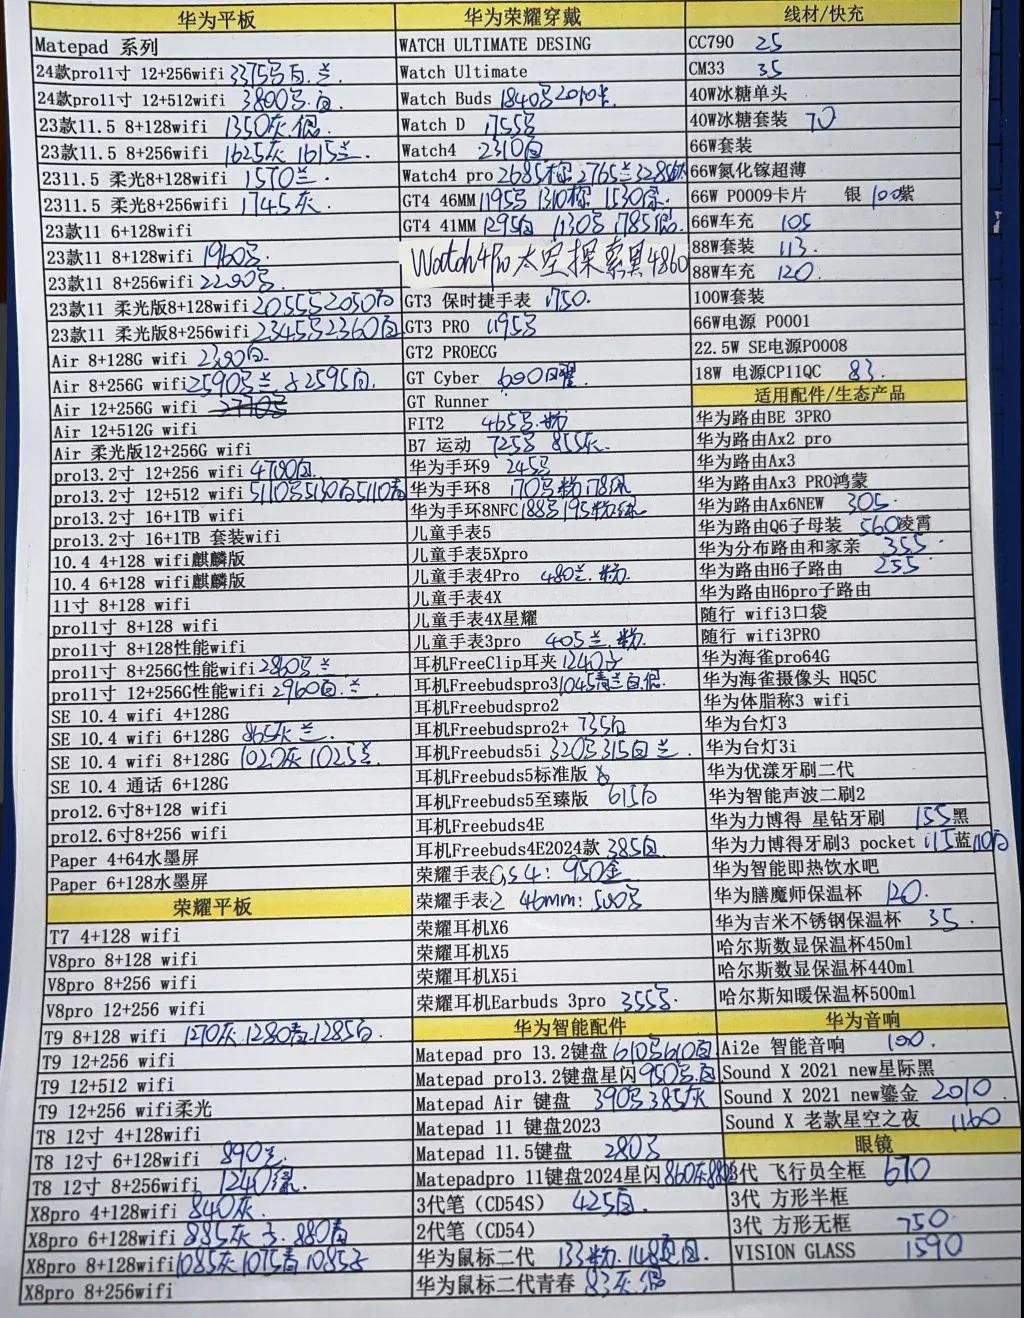 华为平板
Matepad 系列
24款pro11寸 12+256wifi 3375 白.兰.
24款pro11寸 12+512wifi 3800 白.
23款11.5 8+128wifi 1350灰.银.
23款11.5 8+256wifi 1625灰 1615兰.
2311.5 柔光8+128wifi 1570兰.
2311.5 柔光8+256wifi 1745灰.
23款11 6+128wifi
23款11 8+128wifi 1960
23款11 8+256wifi
23款11 柔光版8+128wifi 2055 2050白
23款11 柔光版8+256wifi 2345 2360白
Air 8+128G wifi 白.
Air 8+256G wifi 2590 兰 2595白.
Air 12+256G wifi
Air 12+512G wifi
Air 柔光版12+256G wifi
pro13.2寸 12+256 wifi 4790白.
pro13.2寸 12+512 wifi 5110 5130白5110青
pro13.2寸 16+1TB wifi
pro13.2寸 16+1TB 套装wifi
10.4 4+128 wifi麒麟版
10.4 6+128 wifi麒麟版
11寸 8+128 wifi
pro11寸 8+128 wifi
pro11寸 8+128性能wifi
pro11寸 8+256G性能wifi 2860 兰
pro11寸 12+256G性能wifi 2960白.兰.
SE 10.4 wifi 4+128G
SE 10.4 wifi 6+128G 865灰兰.
SE 10.4 wifi 8+128G 1020灰1025兰.
SE 10.4 通话 6+128G
pro12.6寸8+128 wifi
pro12.6寸8+256 wifi
Paper 4+64水墨屏
Paper 6+128水墨屏
荣耀平板
T7 4+128 wifi
V8pro 8+128 wifi
V8pro 8+256 wifi
V8pro 12+256 wifi
T9 8+128 wifi 1270灰.1280青.1285白.
T9 12+256 wifi
T9 12+512 wifi
T9 12+256 wifi柔光
T8 12寸 4+128wifi
T8 12寸 6+128wifi 890兰.
T8 12寸 8+256wifi 1240绿.
X8pro 4+128wifi 840灰.
X8pro 6+128wifi 885灰 880青
X8pro 8+128wifi 1085灰1075青1085
X8pro 8+256wifi
华为荣耀穿戴
WATCH ULTIMATE DESING
Watch Ultimate
Watch Buds 1840 2010
Watch D 1755
Watch4 2310白
Watch4 pro 2685棕 2765兰
GT4 46MM 1195 1310棕 1530绿.
GT4 41MM 1295白 1130 1785银.
Watch4Pro太空探索黑4860
GT3 保时捷手表 1750.
GT3 PRO 1195
GT2 PROECG
GT Cyber 690
GT Runner
FIT2 465 .粉
B7 运动 725 855灰.
华为手环9 245
华为手环8 170 粉178绿
华为手环8NFC 188 195粉绿
儿童手表5
儿童手表5Xpro
儿童手表4Pro 480兰.粉.
儿童手表4X
儿童手表4X星耀
儿童手表3pro 405兰.粉.
耳机FreeClip耳夹 1240
耳机Freebudspro3 1045青兰白.银.
耳机Freebudspro2
耳机Freebudspro2+ 735白
耳机Freebuds5i 320 315白 兰.
耳机Freebuds5标准版
耳机Freebuds5至臻版 615白
耳机Freebuds4E
耳机Freebuds4E2024款 385白.
荣耀手表GS4: 950金
荣耀手表2 46mm: 500
荣耀耳机X6
荣耀耳机X5
荣耀耳机X5i
荣耀耳机Earbuds 3pro 355
华为智能配件
Matepad pro 13.2键盘 610 610白
Matepad pro13.2键盘星闪 950 .白
Matepad Air 键盘 390 385灰
Matepad 11 键盘2023
Matepad 11.5键盘 280
Matepadpro 11键盘2024星闪 860灰
3代笔（CD54S） 425白.
2代笔（CD54）
华为鼠标二代 133粉.
华为鼠标二代青春 83灰.银
线材/快充
CC790 25
CM33 35
40W冰糖单头
40W冰糖套装 70
66W套装
66W氮化镓超薄
66W P0009卡片 银 100紫
66W车充 105
88W套装 113.
88W车充 120.
100W套装
66W电源 P0001
22.5W SE电源P0008
18W 电源CP11QC 83.
适用配件/生态产品
华为路由BE 3PRO
华为路由Ax2 pro
华为路由Ax3
华为路由Ax3 PRO鸿蒙
华为路由Ax6NEW 305.
华为路由Q6子母装 560凌霄
华为分布路由和家亲 355.
华为路由H6子路由 255.
华为路由H6pro子路由
随行 wifi3口袋
随行 wifi3PRO
华为海雀pro64G
华为海雀摄像头 HQ5C
华为体脂称3 wifi
华为台灯3
华为台灯3i
华为优漾牙刷二代
华为智能声波二刷2
华为力博得 星钻牙刷 155黑
华为力博得牙刷3 pocket 115蓝110白
华为智能即热饮水吧
华为膳魔师保温杯 120.
华为吉米不锈钢保温杯 35.
哈尔斯数显保温杯450ml
哈尔斯数显保温杯440ml
哈尔斯知暖保温杯500ml
华为音响
Ai2e 智能音响 100.
Sound X 2021 new星际黑
Sound X 2021 new鎏金 2010.
Sound X 老款星空之夜 1160
眼镜
3代 飞行员全框 670
3代 方形半框
3代 方形无框 750.
VISION GLASS 1590